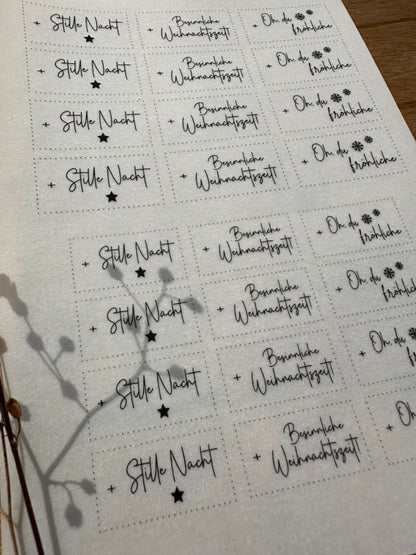 + Stille Nacht
+ Besinnliche
Weihnachtszeit!
+ Oh, du
fröhliche
+ Stille Nacht
+ Besinnliche
Weihnachtszeit!
+ Oh, du
fröhliche
+ Stille Nacht
+ Besinnliche
Weihnachtszeit!
+ Oh, du
fröhliche
+ Stille Nacht
+ Besinnliche
Weihnachtszeit!
+ Oh, du
fröhliche
+ Stille Nacht
+ Besinnliche
Weihnachtszeit!
+ Oh, du
fröhliche
+ Stille Nacht
+ Besinnliche
Weihnachtszeit!
+ Oh, du
fröhliche
+ Stille Nacht
+ Besinnliche
Weihnachtszeit!
+ Oh, du
+ Stille Nacht
+ Besinnliche
Weihnachtszeit!
+